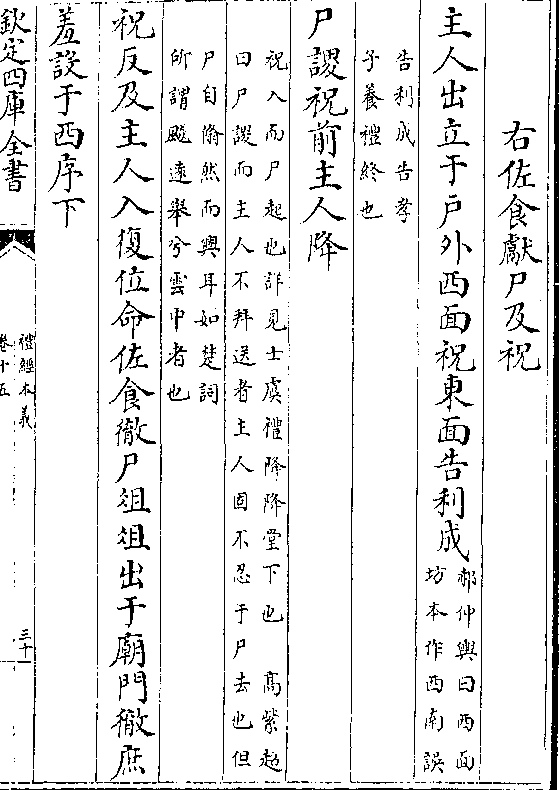 右佐食獻尸及祝
主人出立于戶外西面祝東面告利成郝仲輿曰西面
坊本作西南誤
告利成告孝
子養禮終也
尸謖祝前主人降
祝入而尸起也詳見士虞禮降降堂下也　高紫超
曰尸謖而主人不拜送者主人固不忍于尸去也但
尸自翛然而興耳如楚詞
所謂飈遠舉兮雲中者也
祝反及主人入復位命佐食徹尸俎俎出于廟門徹庶
羞設于西序下
欽定四庫全書
禮經本義
卷十五
三十